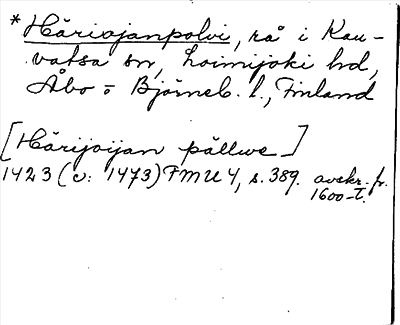 * Häriojanpolvi, rå i Kau-
vatsa sn, Loimijoki hd,
Åbo o Björneb. l., Finland
[Härijoijan pällwe]
1423 (v: 1473) FMU 4, s. 389. avskr. fr.
1600-t.